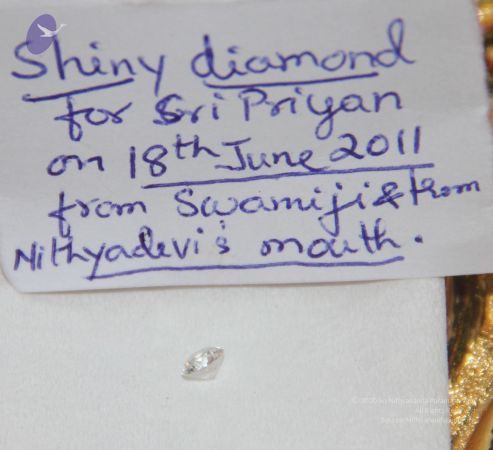 Shiny diamond
for Sri Priyan
on 18th June 2011
from Swamiji & from
Nithyadevi's mouth.
All Rights